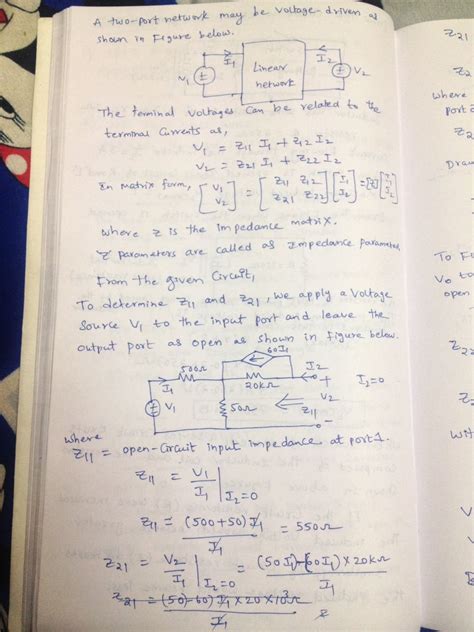 A two-port network may be voltage-driven as
shown in Figure below.
I1
I2
V1
Linear
network
V2
The terminal voltages can be related to the
terminal currents as,
V1 = Z11 I1 + Z12 I2
V2 = Z21 I1 + Z22 I2
In matrix form, [V1 V2] = [Z11 Z12 Z21 Z22] [I1 I2] = [Z] [I1 I2]
where Z is the impedance matrix.
Z parameters are called as Impedance parameter
From the given circuit,
To determine Z11 and Z21, we apply a voltage
Source V1 to the input port and leave the
output port as open as shown in figure below.
60I1
500Ω
I1
20kΩ
I2
I2=0
V1
50Ω
V2
Z11
where
Z11 = open-circuit input impedance at port 1.
Z11 = V1/I1 | I2=0
Z11 = (500+50) I1 / I1 = 550Ω
Z21 = V2/I1 | I2=0 = (50I1)-(60I1)×20kΩ / I1
Z21 = (50)-60) I1 × 20×10³Ω / I1
Z21
where
port
Draw
To Fi
V2 to
open
wit